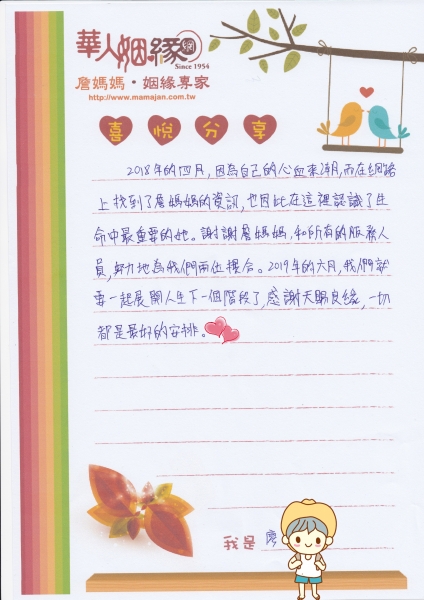 華人姻緣網
Since 1954
詹媽媽・姻緣專家
http://www.mamajan.com.tw
喜悅分享
2018年的四月，因為自己的心血來潮，而在網路
上找到了詹媽媽的資訊，也因此在這裡認識了生
命中最重要的她。謝謝詹媽媽，和所有的服務人
員，努力地為我們兩位撮合。2019年的六月，我們就
要一起展開人生下一個階段了，感謝天賜良緣，一切
都是最好的安排。
我是 廖